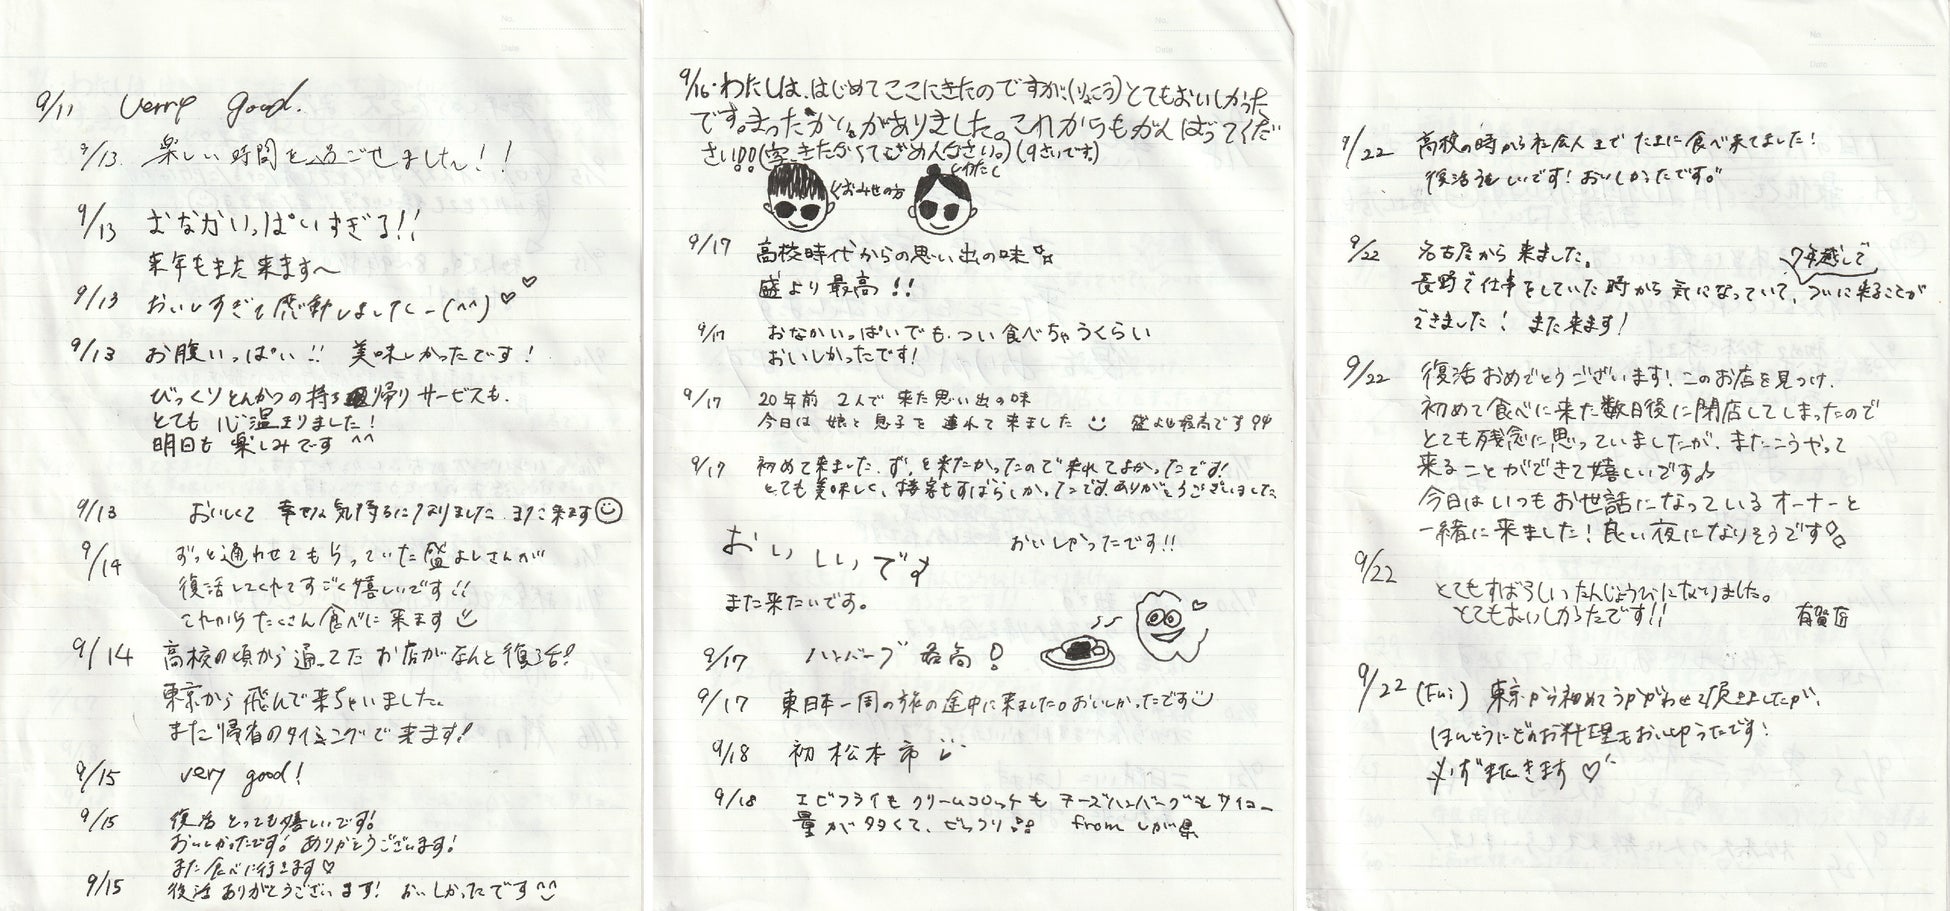 9/11 Verry good.
9/13 楽しい時間を過ごせました!!
9/13 おなかいっぱいすぎる!!
来年もまた来ます〜
9/13 おいしすぎて感動しましたー(^^)♡♡
9/13 お腹いっぱい!! 美味しかったです!
びっくりとんかつの持ち帰りサービスも、
とても心温まりました!
明日も楽しみです^^
9/13 おいしくて幸せな気持ちになりました また来ます☺
9/14 ずっと通わせてもらっていた盛よしさんが
復活してくれてすごく嬉しいです!!
これからもたくさん食べに来ます
9/14 高校の頃から通ってたお店がなんと復活!
東京から飛んで来ちゃいました。
また帰省のタイミングで来ます!
9/15 very good!
9/15 復活とっても嬉しいです!
おいしかったです! ありがとうございます!
また食べに行きます♡
9/15 復活ありがとうございます! おいしかったです^^
No.
Date
9/16・わたしは、はじめてここにきたのですが、(りょこう)とてもおいしかった
です。まったかいがありました。これからもがんばってくだ
さい!!(字、きたなくてごめんなさい。)(9さいです。)
おみせの方
わたし
9/17 高校時代からの思い出の味☆
盛よし最高!!
9/17 おなかいっぱいでも、つい食べちゃうくらい
おいしかったです!
9/17 20年前 2人で来た思い出の味
今日は娘と息子を連れて来ました☺ 盛よし最高です
9/17 初めて来ました、ずっと来たかったので来れてよかったです!
とても美味しく、接客もすばらしかったです。ありがとうございました
おいしいです
おいしかったです!!
また来たいです。
9/17 ハンバーグ最高!
9/17 東日本一周の旅の途中に来ました。おいしかったです
9/18 初松本市
9/18 エビフライもクリームコロッケもチーズハンバーグもサイコー
量が多くて、びっくり!! from しが県
9/22 高校の時から社会人までたまに食べ来てました!
復活嬉しいです! おいしかったです。
9/22 名古屋から来ました。
7年越しで
長野で仕事をしていた時から気になっていて、ついに来ることが
できました! また来ます!
9/22 復活おめでとうございます! このお店を見つけ、
初めて食べに来た数日後に閉店してしまったので
とても残念に思っていましたが、またこうやって
来ることができて嬉しいです♪
今日はいつもお世話になっているオーナーと
一緒に来ました! 良い夜になりそうです
9/22 とてもすばらしいたんじょうびになりました。
とてもおいしかったです!! 有賀 匠
9/22 (Fri) 東京から初めてうかがわせて頂きましたが、
ほんとうにどのお料理もおいしかったです!
必ずまたきます♡